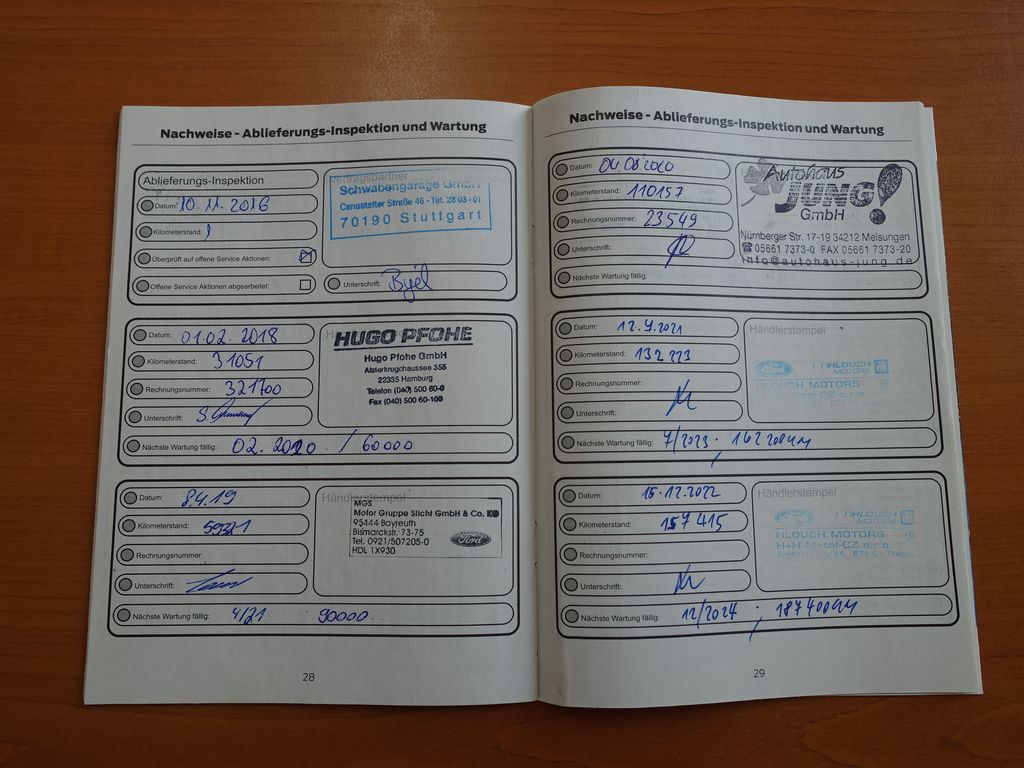 Nachweise - Ablieferungs-Inspektion und Wartung
Ablieferungs-Inspektion
Datum: 10.11.2016
Kilometerstand: 1
Überprüft auf offene Service Aktionen:
Offene Service Aktionen abgearbeitet:
Vertragspartner
Schwabengarage GmbH
Cannstatter Straße 46 - Tel. 28 03 - 01
70190 Stuttgart
Unterschrift:
Datum: 01.02.2018
Kilometerstand: 31051
Rechnungsnummer: 321700
Unterschrift:
HUGO PFOHE
Hugo Pfohe GmbH
Alsterkrugchaussee 355
22335 Hamburg
Telefon (040) 500 60-0
Fax (040) 500 60-100
Nächste Wartung fällig: 02.2020 / 60000
Datum: 8.4.19
Kilometerstand: 59321
Rechnungsnummer:
Unterschrift:
Händlerstempel
MGS
Motor Gruppe Sticht GmbH & Co. KG
95444 Bayreuth
Bismarckstr. 73-75
Tel. 0921/507205-0
HDL 1X930
Ford
Nächste Wartung fällig: 4/21 90000
28
Nachweise - Ablieferungs-Inspektion und Wartung
Datum: 04.08.2020
Kilometerstand: 110157
Rechnungsnummer: 23549
Unterschrift:
Nächste Wartung fällig:
Autohaus
JUNG!
GmbH
Nürnberger Str. 17-19 34212 Melsungen
☎ 05661 7373-0 FAX 05661 7373-20
info@autohaus-jung.de
Datum: 12.7.2021
Kilometerstand: 132223
Rechnungsnummer:
Unterschrift:
Händlerstempel
Ford HLOUCH
MOTORS
HLOUCH MOTORS
H+H Metal-CZ s.r.o.
Nächste Wartung fällig: 7/2023; 162200km
Datum: 15.12.2022
Kilometerstand: 157415
Rechnungsnummer:
Unterschrift:
Händlerstempel
HLOUCH
MOTORS
HLOUCH MOTORS
H+H Metal-CZ s.r.o.
Nächste Wartung fällig: 12/2024; 187400km
29